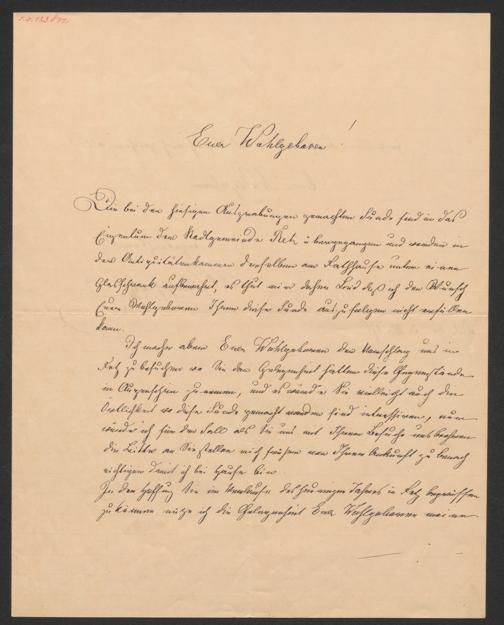 Euer Wohlgeboren!
Die bei den hiesigen Ausgrabungen gemachten Funde sind in das
Eigentum der Stadtgemeinde Retz übergegangen und werden in
der Antiquitätenkammer derselben am Rathhause unter einem
Glasschrank aufbewahrt, es thut mir daher Leid daß ich den Wunsch
Euer Wohlgeboren Ihnen diese Funde auszufolgen nicht erfüllen
kann.
Ich mache aber Euer Wohlgeboren den Vorschlag uns in
Retz zu besuchen wo Sie den Gelegenheit hätten diese Gegenstände
in Augenschein zu nemen, und es würde Sie vielleicht auch die
Örtlichkeit wo diese Funde gemacht worden sind interessieren, nur
würde ich für den Fall als Sie uns mit Ihrem Besuche
die Bitte an Sie stellen mich früher von Ihrer Ankunft zu benach
richtigen damit ich bei Hause bin.
In der Hoffnung Sie im Verlaufe des heurigen Jahres in Retz begrüssen
zu können nütze ich die Gelegenheit Euer Wohlgeboren meinen